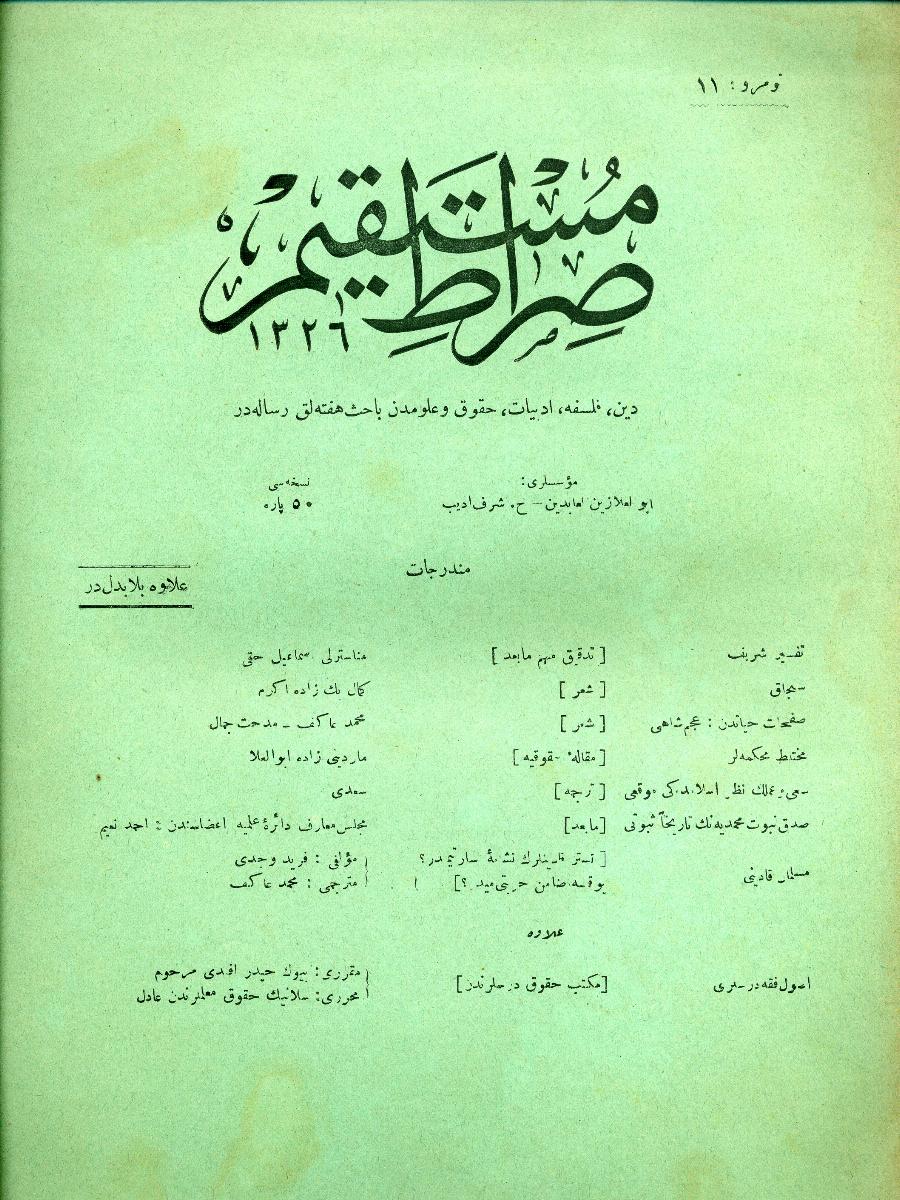 نومرو : ١١
صراط مستقیم
١٣٢٦
دین، فلسفه، ادبیات، حقوق وعلومدن باحث هفته‌لق رساله‌در
مؤسسلری:
ابو العلا زین العابدین — ح . شرف ادیب
نسخه‌سی
٥٠ پاره
مندرجات
علاوه بلابدل‌در
تفسیر شریف [ تدقیق مهم مابعد ] مناسترلی اسماعیل حقی
سنجاق [ شعر ] کمال بك زاده اکرم
صفحات حیاتدن : عجم شاهی [ شعر ] محمد عاکف ـ مدحت جمال
مختلط محکمه‌لر [ مقالهٔ حقوقیه ] ماردینی زاده ابوالعلا
سعی و عملك نظر اسلامده‌کی موقعی [ ترجمه ] سعدی
صدق نبوت محمدیه‌نك تاریخاً ثبوتی [ مابعد ] مجلس معارف دائرهٔ علمیه اعضاسندن : احمد نعیم
مسلمان قادینی [ تستر قادینلرك نشانهٔ اسارتیمیدر ؟ مؤلفی : فرید وجدی
یوقسه ضامن حریتی‌میدر ؟ ] مترجمی : محمد عاکف
علاوه
اصول فقه درسلری [ مکتب حقوق درسلرندن ] مقرری : بیوك حیدر افندی مرحوم
محرری : سلانیك حقوق معلملرندن عادل